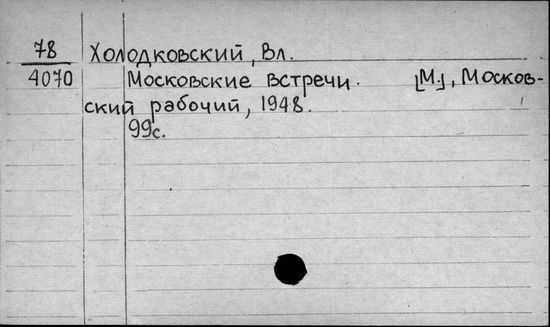 78 Холодковский, Вл.
4070 Московские встречи. [М.], Москов-
ский рабочий, 1948.
99с.